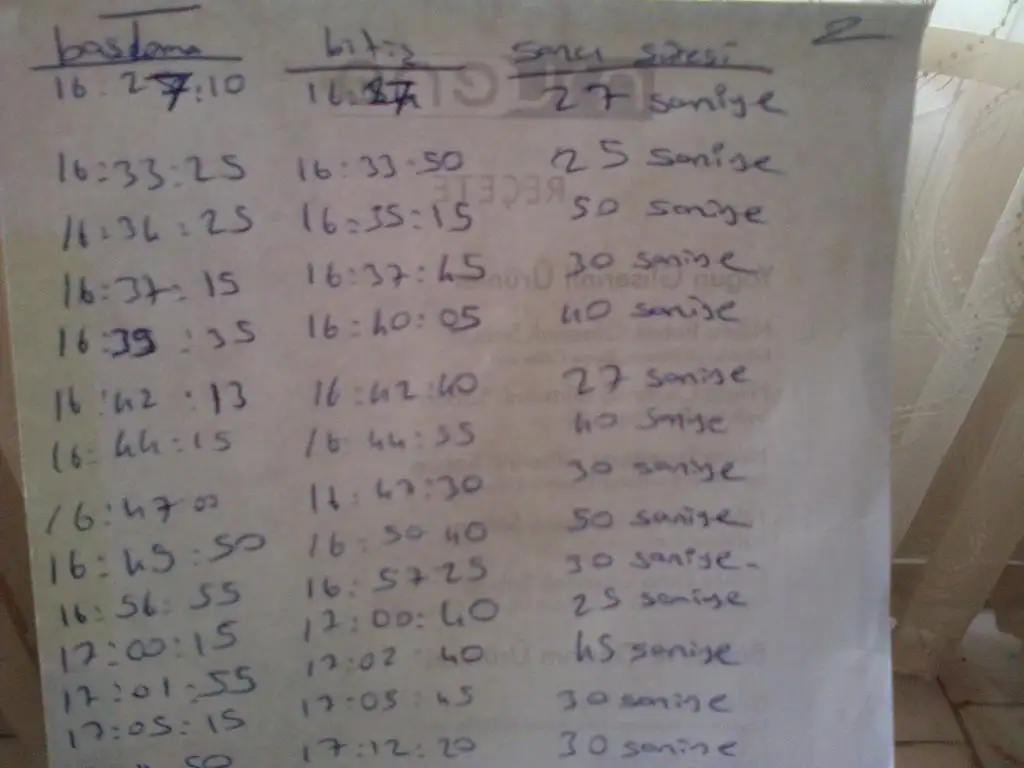 2
başlama bitiş sancı süresi
16:27:10 16:27 27 saniye
16:33:25 16:33:50 25 saniye
16:34:25 16:35:15 50 saniye
16:37:15 16:37:45 30 saniye
16:39:35 16:40:05 40 saniye
16:42:13 16:42:40 27 saniye
16:44:15 16:44:55 40 saniye
16:47:00 16:47:30 30 saniye
16:49:50 16:50 40 50 saniye
16:56:55 16:57 25 30 saniye.
17:00:15 17:00:40 25 saniye
17:01:55 17:02 40 45 saniye
17:05:15 17:05:45 30 saniye
50 17:12:20 30 saniye
REÇETE